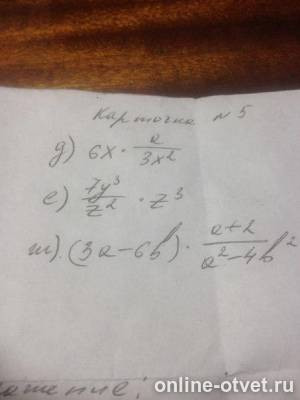 Карточка № 5
д) 6x · a/3x²
е) 7y³/z² · z³
ж). (3a-6b) · a+2/a²-4b²
online-otvet.ru